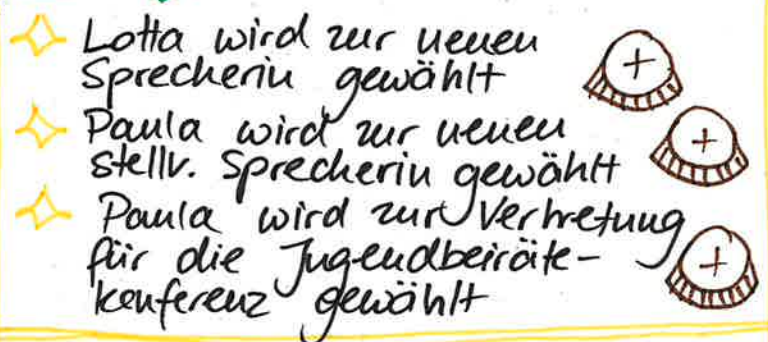 Lotta wird zur neuen
Sprecherin gewählt
Paula wird zur neuen
stellv. Sprecherin gewählt
Paula wird zur Vertretung
für die Jugendbeiräte-
konferenz gewählt